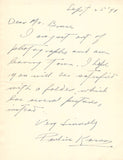 Sept 25 '49
Dear Mr. Brown
I am just out of
photographs and am
leaving town. I hope
you will be satisfied
with a folder which
has several pictures
instead.
Very Sincerely